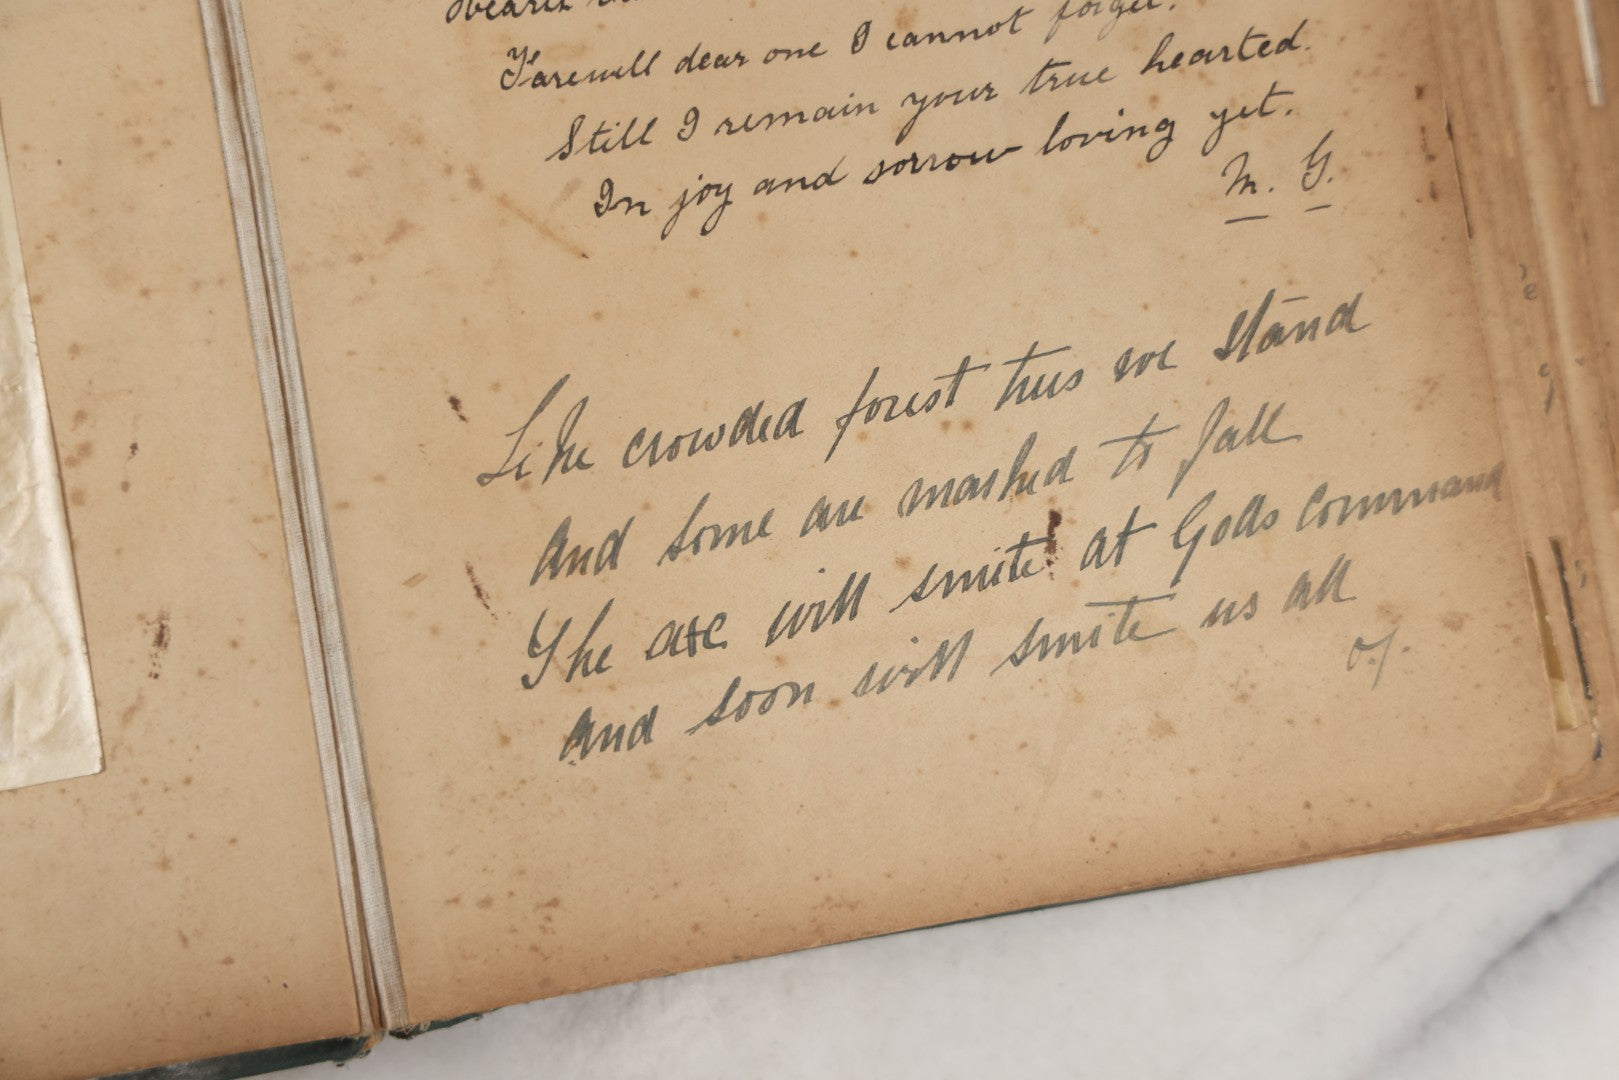 Farewell dear one I cannot forget.
Still I remain your true hearted.
In joy and sorrow loving yet.
M. G.
Like crowded forest trees we stand
And some are marked to fall
The axe will smite at Gods command
And soon will smite us all